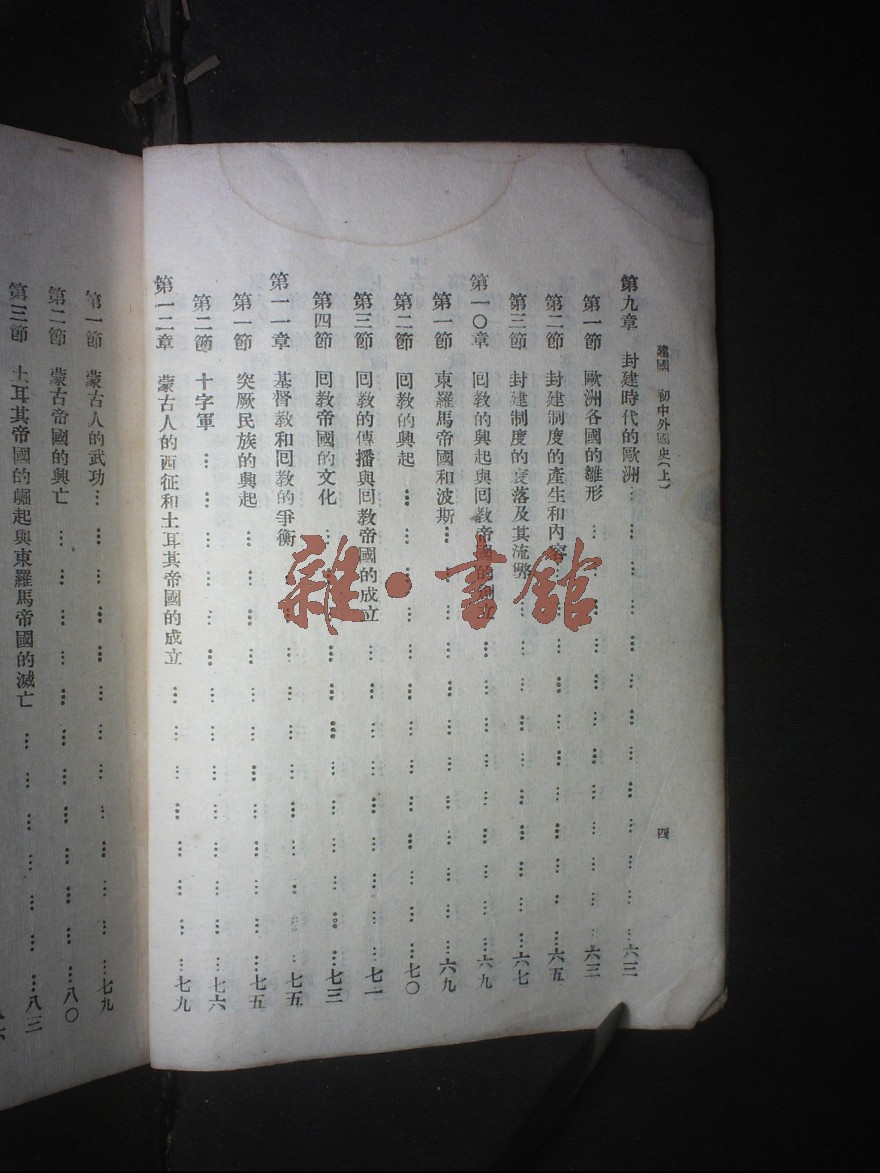 建國 初中外國史(上)
四
第九章 封建時代的歐洲 六三
第一節 歐洲各國的雛形 六三
第二節 封建制度的產生和內容 六五
第三節 封建制度的衰落及其流弊 六七
第一〇章 回教的興起與回教帝國的創立 六九
第一節 東羅馬帝國和波斯 六九
第二節 回教的興起 七〇
第三節 回教的傳播與回教帝國的成立 七一
第四節 回教帝國的文化 七三
第一一章 基督教和回教的爭衡 七五
第一節 突厥民族的興起 七五
第二節 十字軍 七六
第一二章 蒙古人的西征和土耳其帝國的成立 七九
第一節 蒙古人的武功 七九
第二節 蒙古帝國的興亡 八〇
第三節 土耳其帝國的崛起與東羅馬帝國的滅亡 八三
雜·書館